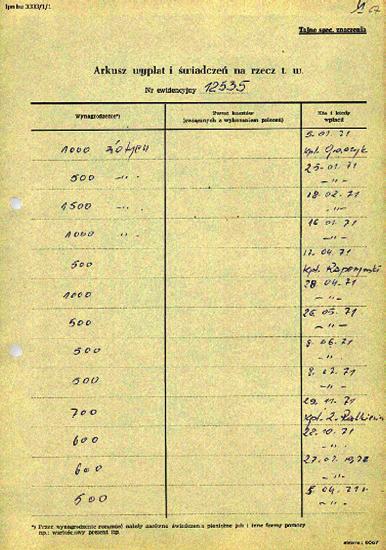 Ipn bu 3333/1/1
Tajne spec. znaczenia
Arkusz wypłat i świadczeń na rzecz t. w.
Nr ewidencyjny 12535
Wynagrodzenie*)
Zwrot kosztów
(związanych z wykonaniem poleceń)
Kto i kiedy
wpłacił
1000 złotych
5.01.71
kpt.
500 -"-
25.01.71
-"-
1500 -"-
18.02.71
-"-
1000 -"-
16.01.71
-"-
500
17.04.71
kpt.
1000
28.04.71
-"-
500
26.05.71
-"-
500
9.06.71
-"-
500
9.07.71
-"-
700
29.11.71
kpt. Z.
600
22.10.71
-"-
600
-"-
500
*) Przez wynagrodzenie rozumieć należy zarówno świadczenia pieniężne jak i inne formy pomocy
np.: wartościowy prezent itp.